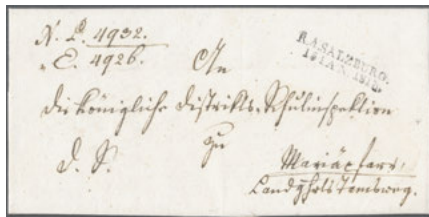 N. P. 4932.
" E. 4926.
R.A.SALZBURG.
An
die königliche Distrikts-Schulinspektion
zu
D. S.
Mariäpfarr,
Landghrts Tamsweg.